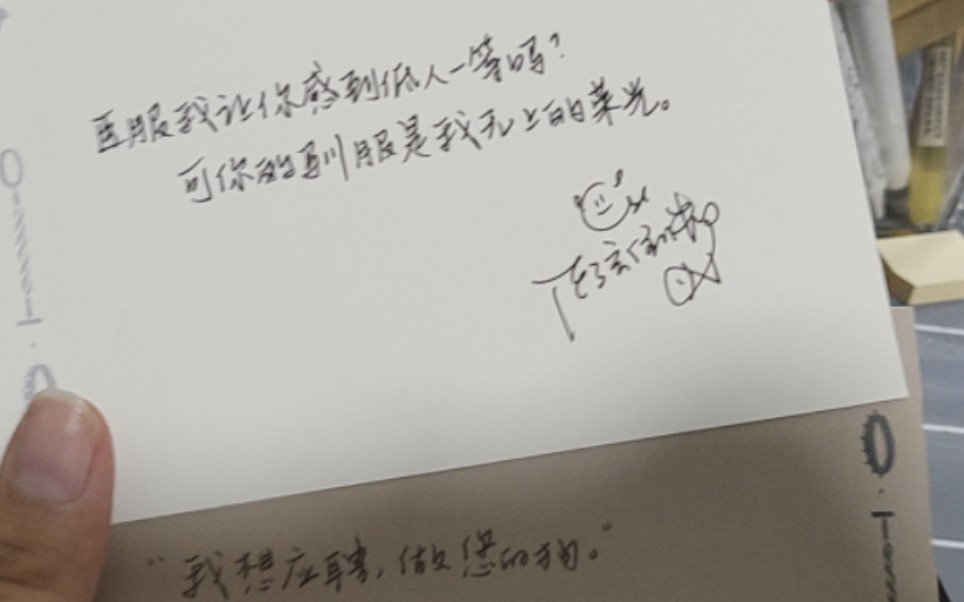 臣服我让你感到低人一等吗?
可你的驯服是我无上的荣光。
"我想应聘,做您的狗。"